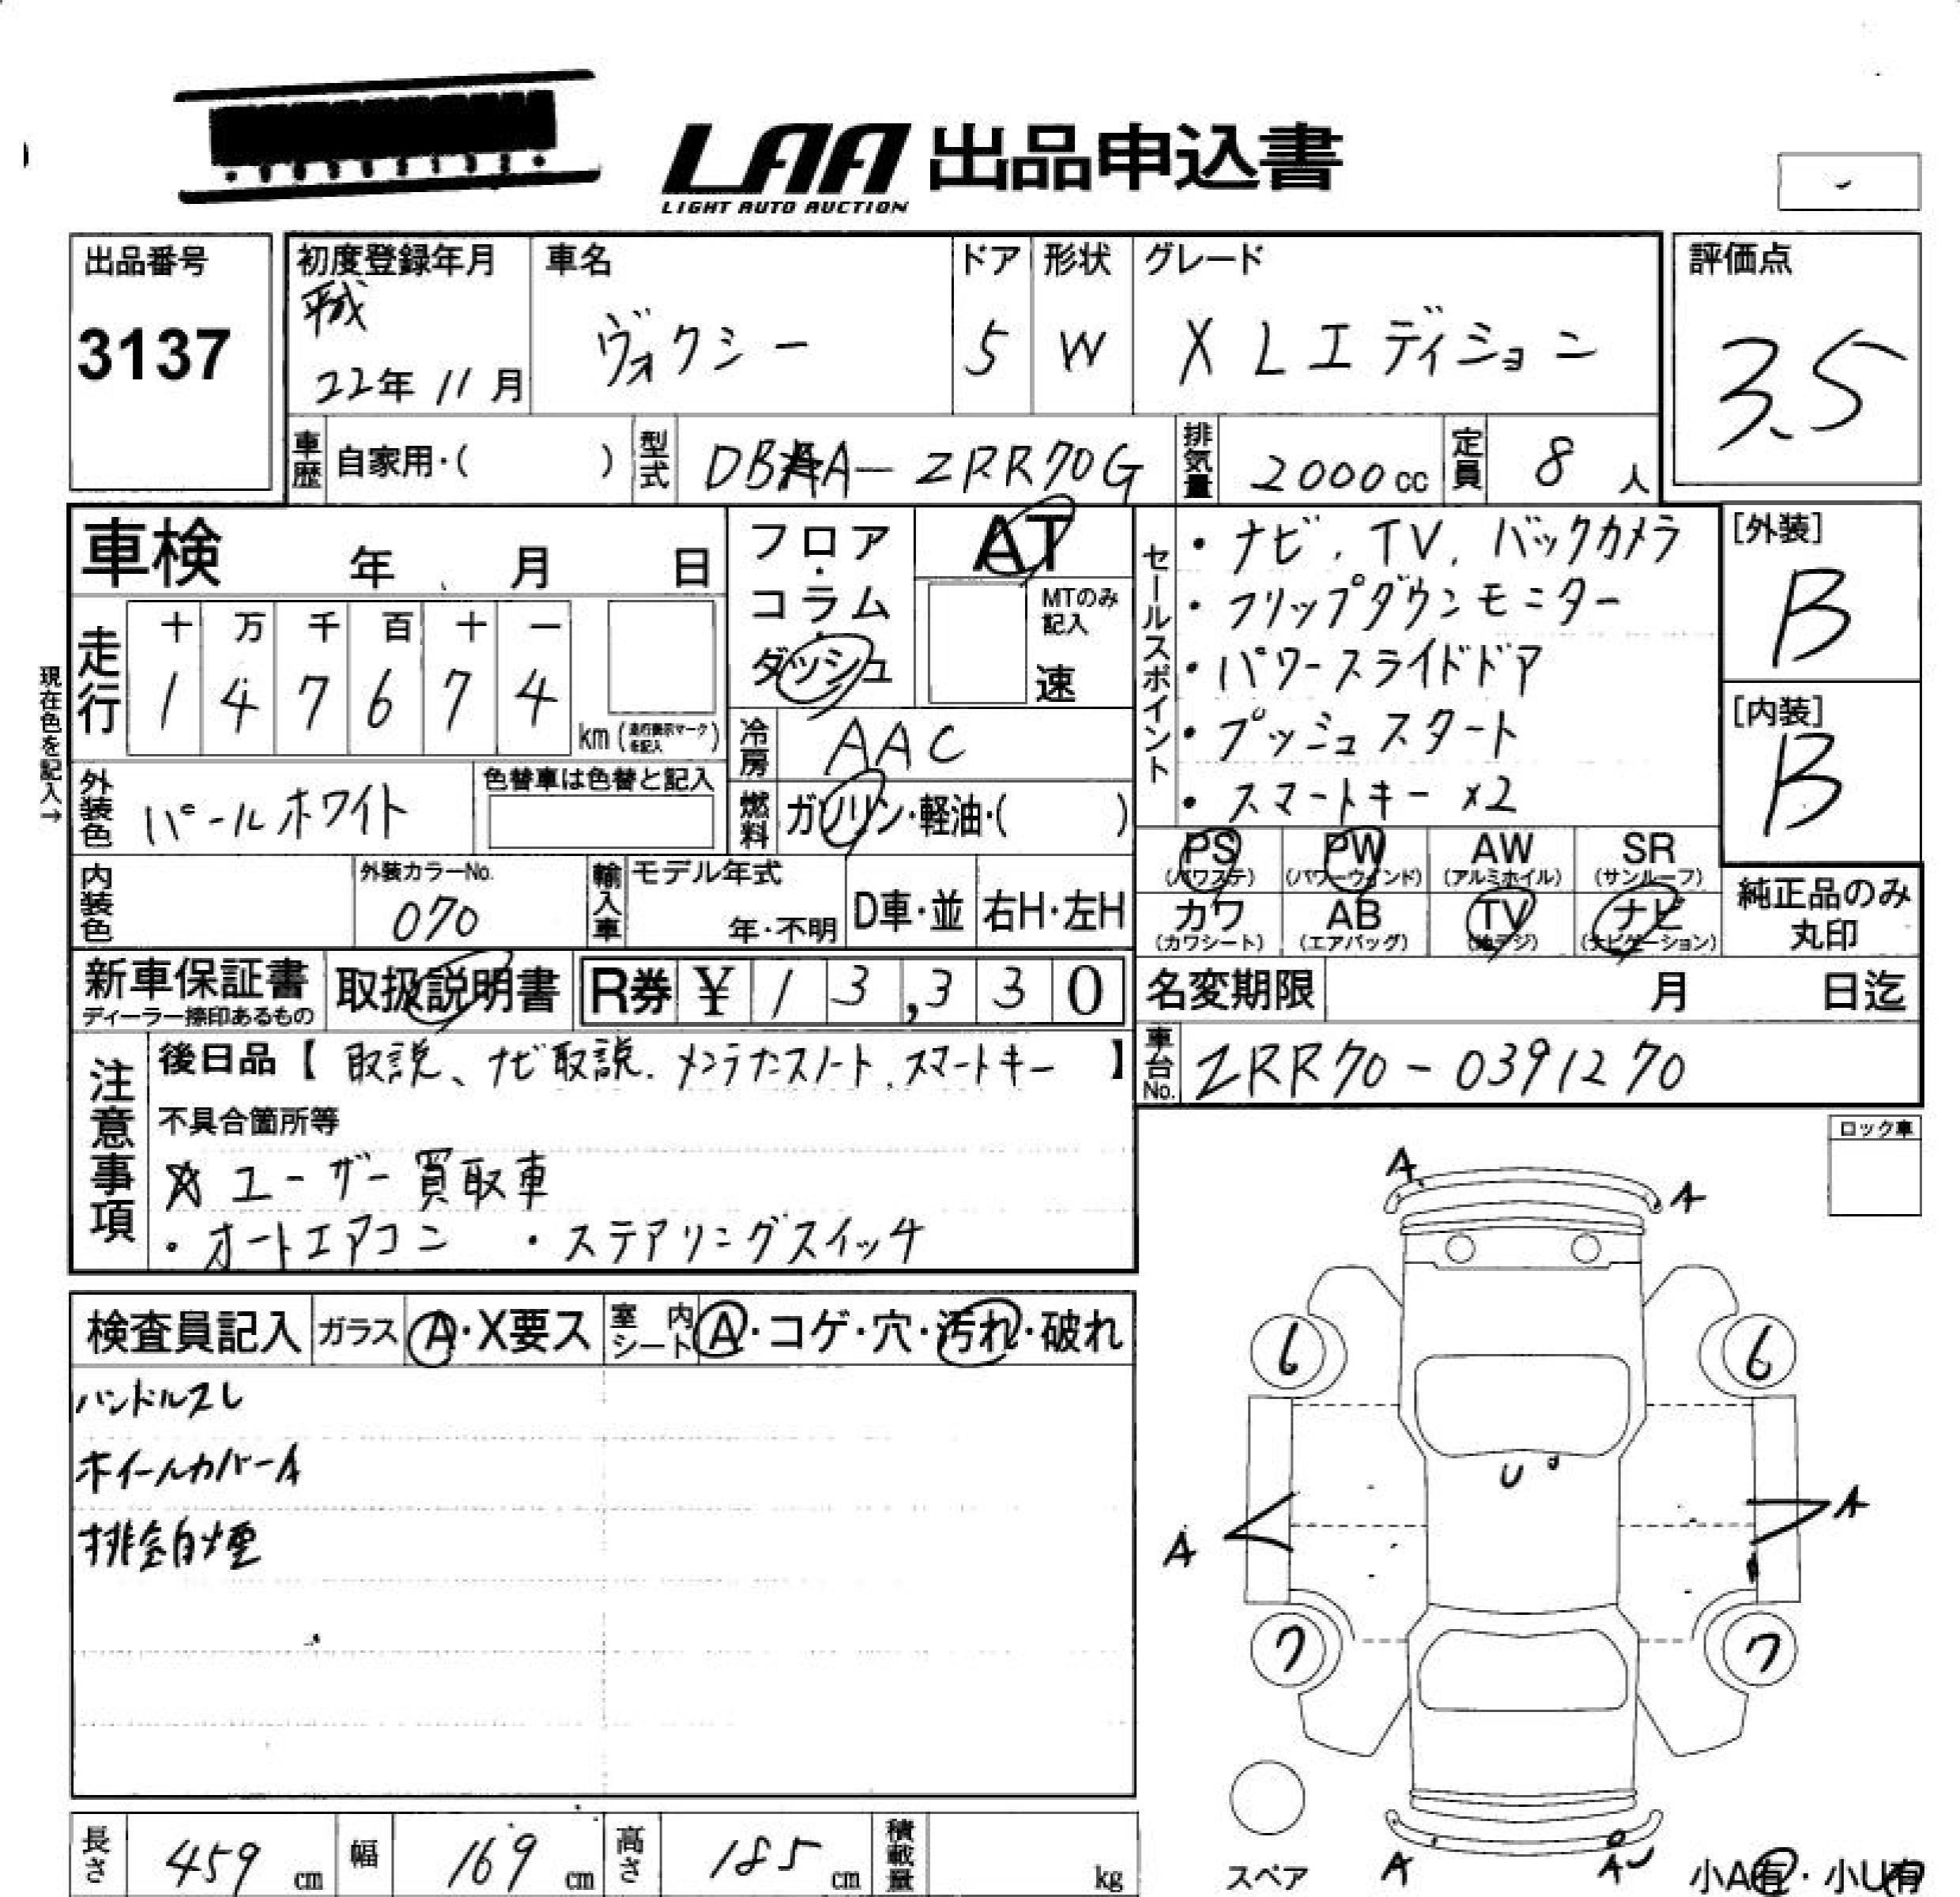 LAA 出品申込書
LIGHT AUTO AUCTION
出品番号
3137
初度登録年月
平成
22年 11月
車名
ヴォクシー
ドア
5
形状
W
グレード
X Lエディション
評価点
3.5
車歴 自家用・( )
型式 DBA-ZRR70G
排気量 2000cc
定員 8人
車検 年 月 日
走行
十 万 千 百 十 一
1 4 7 6 7 4
km (走行表示マークを記入)
現在色を記入→
フロア・コラム・ダッシュ
AT
MTのみ記入
速
冷房 AAC
燃料 ガソリン・軽油・( )
外装色 パールホワイト
色替車は色替と記入
内装色
外装カラーNo.
070
輸入車
モデル年式
年・不明
D車・並
右H・左H
セールスポイント
・ナビ、TV、バックカメラ
・フリップダウンモニター
・パワースライドドア
・プッシュスタート
・スマートキー x2
[外装]
B
[内装]
B
PS (パワステ)
PW (パワーウインド)
AW (アルミホイル)
SR (サンルーフ)
カワ (カワシート)
AB (エアバッグ)
TV (地デジ)
ナビ (ナビゲーション)
純正品のみ
丸印
新車保証書
ディーラー捺印あるもの
取扱説明書
R券 ¥ 13,330
名変期限 月 日迄
車台No. ZRR70-0391270
注意事項
後日品【 取説、ナビ取説、メンテナンスノート、スマートキー 】
不具合箇所等
※ ユーザー買取車
・オートエアコン ・ステアリングスイッチ
ロック車
検査員記入
ガラス A・X要ス
室内シート A・コゲ・穴・汚れ・破れ
ハンドルスレ
ホイールカバーA
排気白煙
A
A
6
6
U
A
A
7
7
スペア
A
A
小A有・小U有
長さ 459 cm
幅 169 cm
高さ 185 cm
積載量 kg